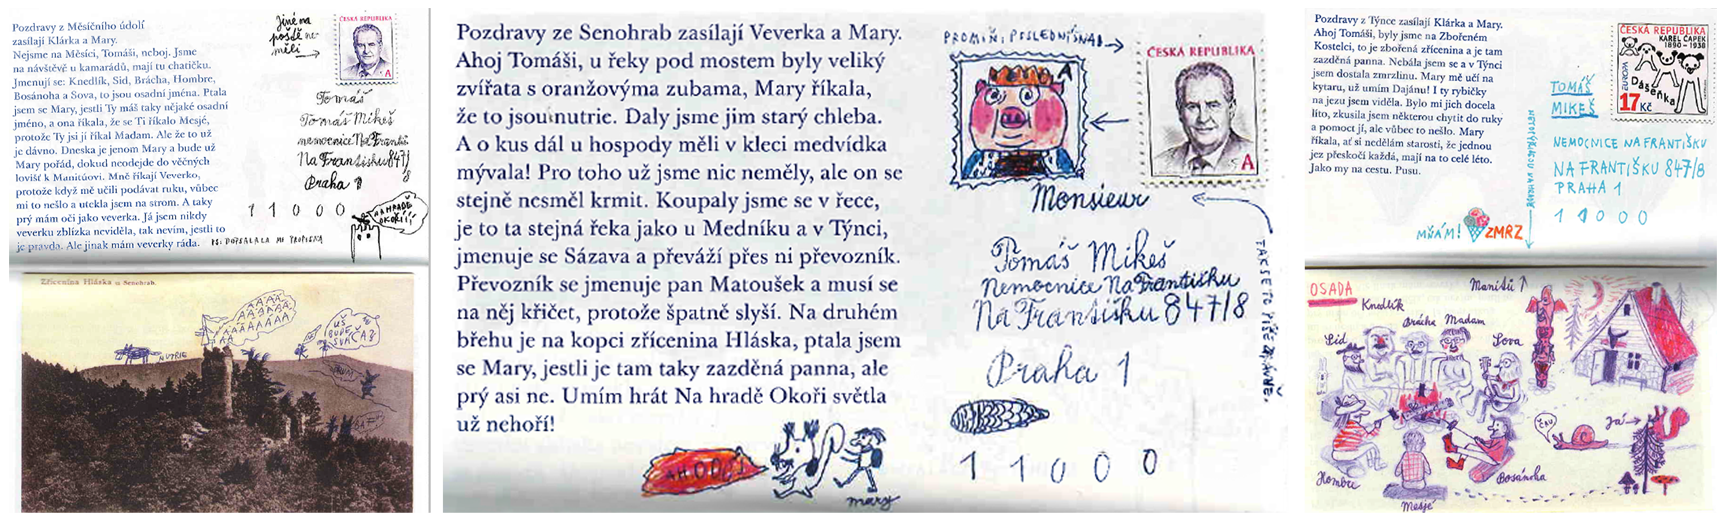 Pozdravy z Měsíčního údolí
zasílají Klárka a Mary.
Nejsme na Měsíci, Tomáši, neboj. Jsme
na návštěvě u kamarádů, mají tu chatičku.
Jmenují se: Knedlík, Sid, Brácha, Hombre,
Bosánoha a Sova, to jsou osadní jména. Ptala
jsem se Mary, jestli Ty máš taky nějaké osadní
jméno, a ona říkala, že se Ti říkalo Mesjé,
protože Ty jsi jí říkal Madam. Ale že to už
je dávno. Dneska je jenom Mary a bude už
Mary pořád, dokud neodejde do věčných
lovišť k Manitúovi. Mně říkají Veverko,
protože když mě učili podávat ruku, vůbec
mi to nešlo a utekla jsem na strom. A taky
prý mám oči jako veverka. Já jsem nikdy
veverku zblízka neviděla, tak nevím, jestli to
je pravda. Ale jinak mám veverky ráda.
PS: DOPSALA LA MI PROPISKA
Jiné na
poště ne-
měli
ČESKÁ REPUBLIKA
A
Tomáš
Tomáš Mikeš
nemocnice Na Františ
Na Františku 847/
8
Praha 1
1 1 0 0 0
NA HRADĚ
OKOŘI!!
Zřícenina Hláska u Senohrab.
NUTRIE
UŠ
BUDE
SVAČA?
Pozdravy ze Senohrab zasílají Veverka a Mary.
Ahoj Tomáši, u řeky pod mostem byly veliký
zvířata s oranžovýma zubama, Mary říkala,
že to jsou nutrie. Daly jsme jim starý chleba.
A o kus dál u hospody měli v kleci medvídka
mývala! Pro toho už jsme nic neměly, ale on se
stejně nesměl krmit. Koupaly jsme se v řece,
je to ta stejná řeka jako u Medníku a v Týnci,
jmenuje se Sázava a převáží přes ni převozník.
Převozník se jmenuje pan Matoušek a musí se
na něj křičet, protože špatně slyší. Na druhém
břehu je na kopci zřícenina Hláska, ptala jsem
se Mary, jestli je tam taky zazděná panna, ale
prý asi ne. Umím hrát Na hradě Okoři světla
už nehoří!
AHOOOJ
mary
PROMIŇ, POSLEDNÍ ŠNAD
A
ČESKÁ REPUBLIKA
A
Monsieur
Tomáš Mikeš
Nemocnice Na Františku
Na Františku 847/8
Praha 1
1 1 0 0 0
TAK SE TO PÍŠE SPRÁVNĚ.
Pozdravy z Týnce zasílají Klárka a Mary.
Ahoj Tomáši, byly jsme na Zbořeném
Kostelci, to je zbořená zřícenina a je tam
zazděná panna. Nebála jsem se a v Týnci
jsem dostala zmrzlinu. Mary mě učí na
kytaru, už umím Dajánu! I ty rybičky
na jezu jsem viděla. Bylo mi jich docela
líto, zkusila jsem některou chytit do ruky
a pomoct jí, ale vůbec to nešlo. Mary
říkala, ať si nedělám starosti, že jednou
jez přeskočí každá, mají na to celé léto.
Jako my na cestu. Pusu.
MŇÁM!
ZMRZ
ČESKÁ REPUBLIKA
KAREL ČAPEK
1890 - 1938
EUROPA
Dášeňka
17 Kč
TOMÁŠ
MIKEŠ
NEMOCNICE NA FRANTIŠKU
NA FRANTIŠKU 847/8
PRAHA 1
1 1 0 0 0
OSADA
Knedlík
Manitú
Sid
Brácha
Madam
Sova
Já
ČAU
Hombre
Mesjé
Bosánoha